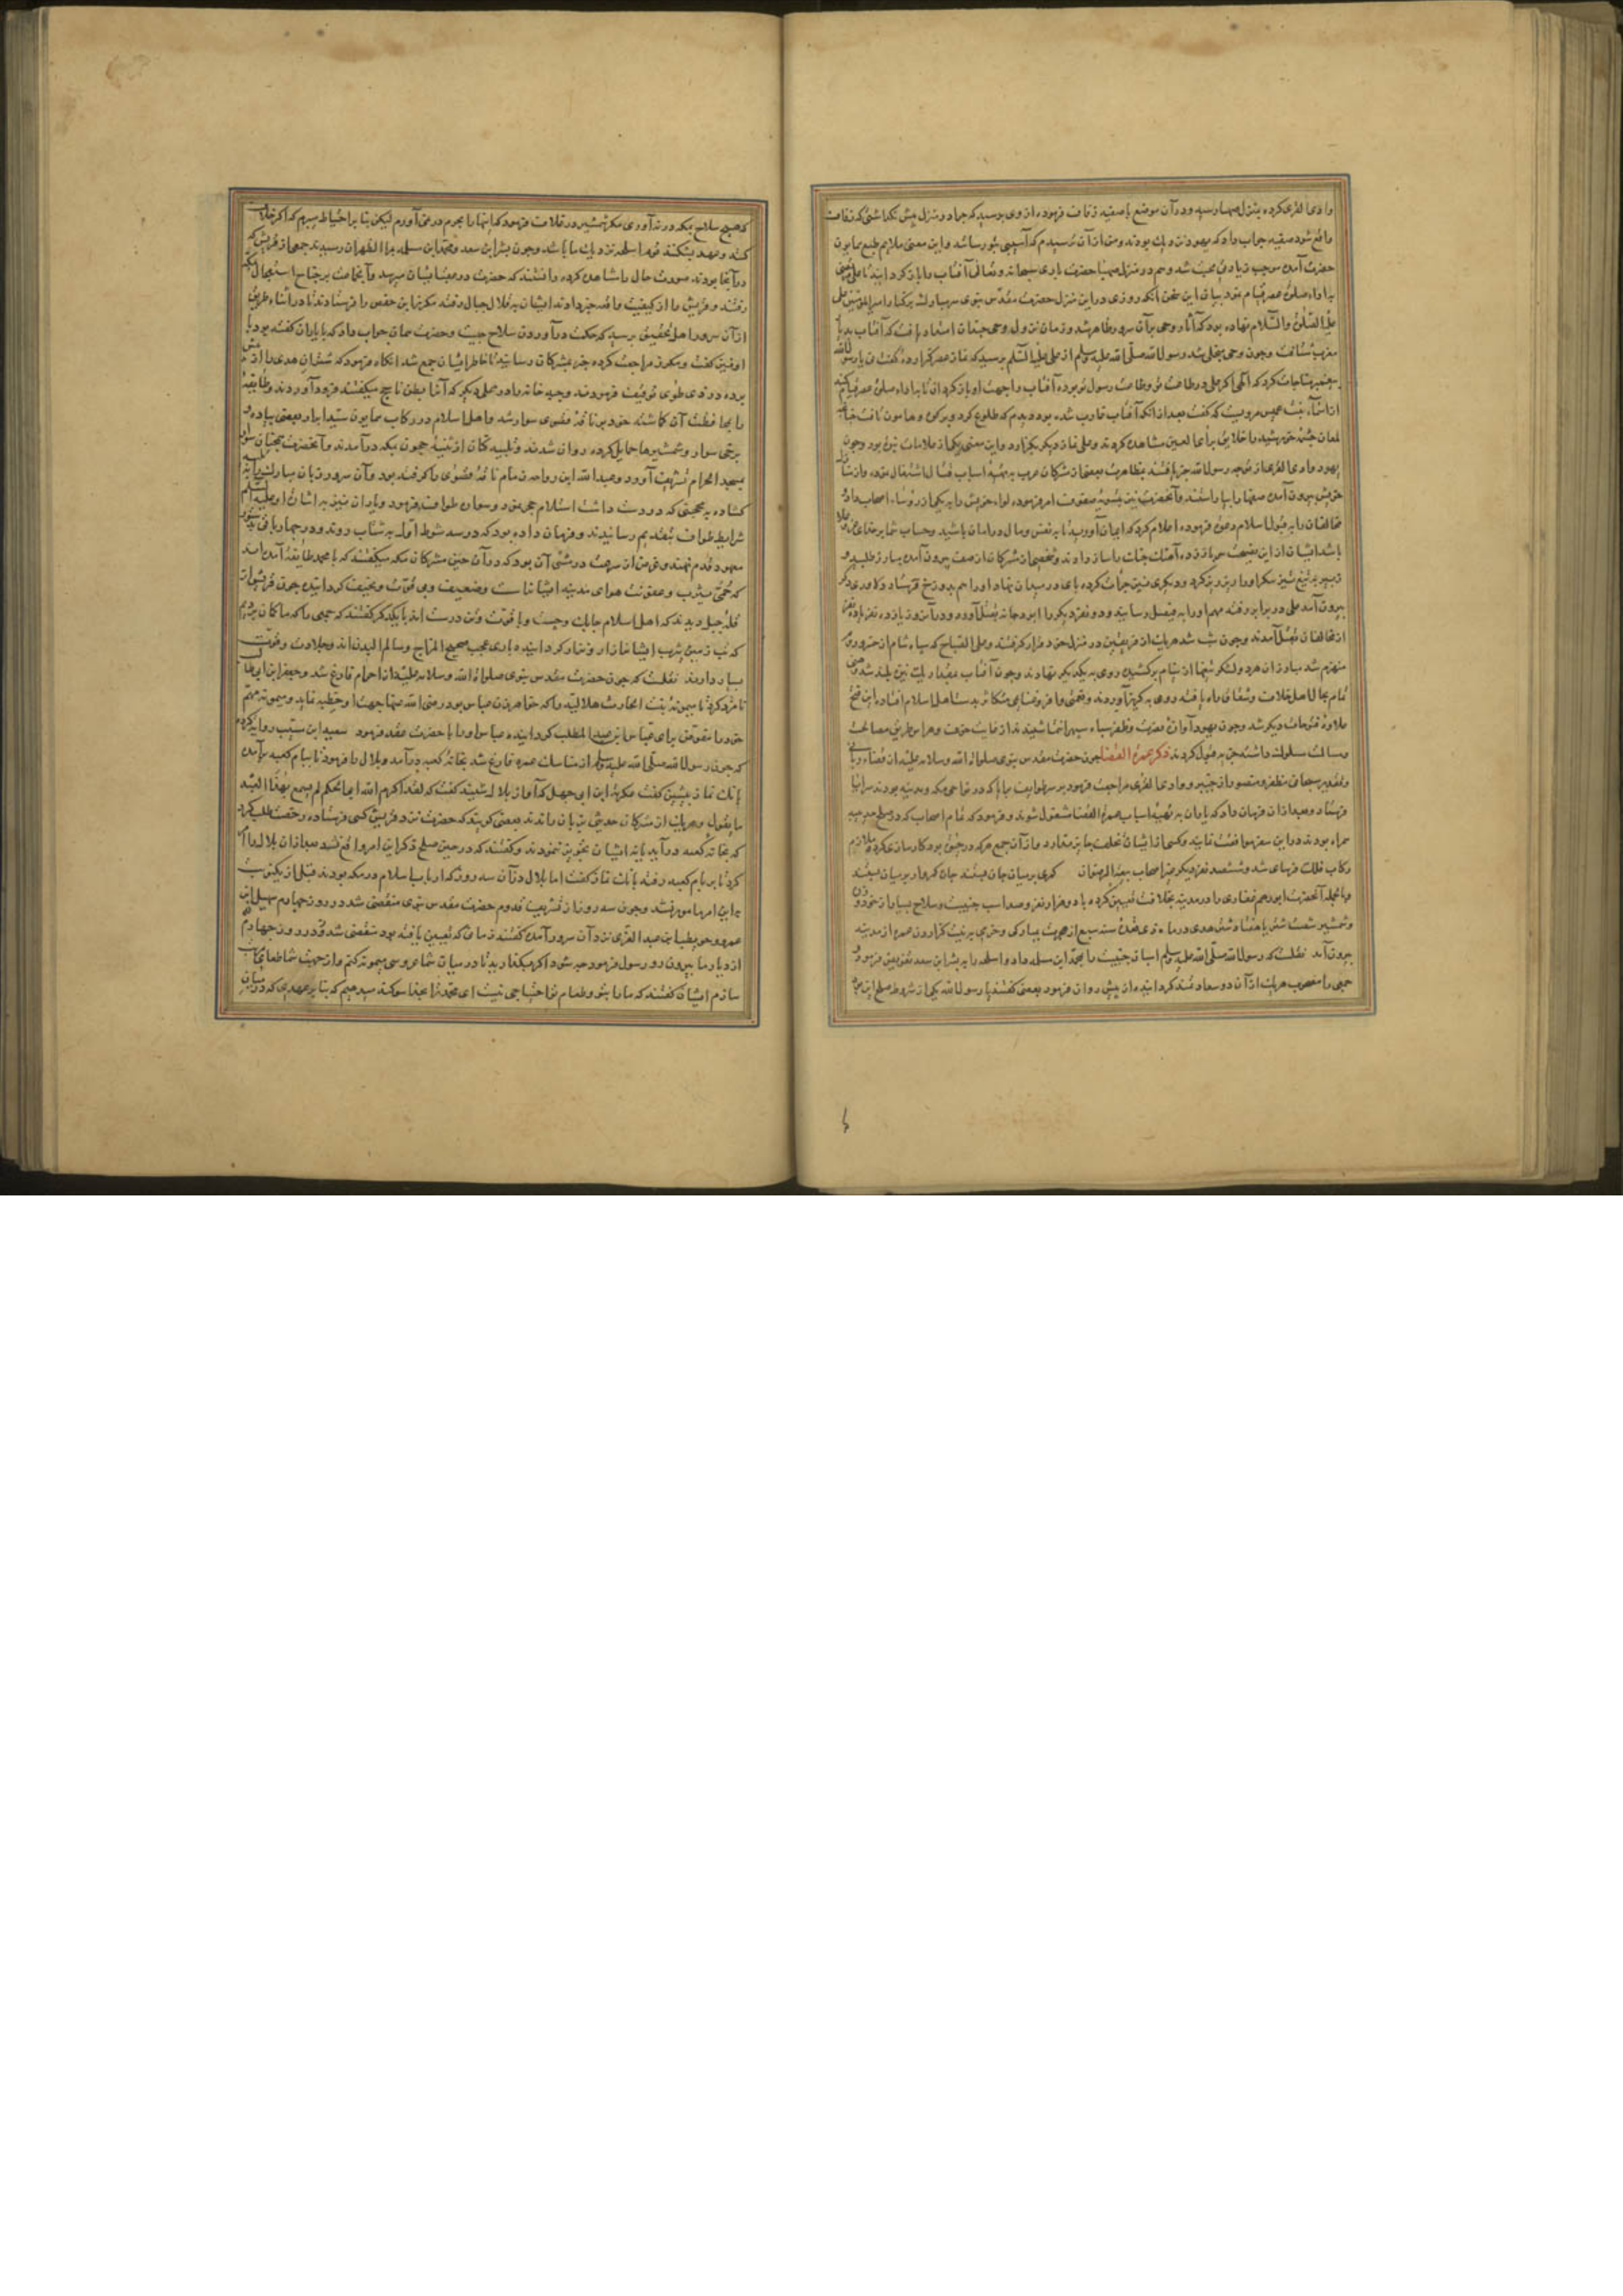 وادی القری کرده بمنزل صهبا رسید و در آن موضع با صفیه زفاف فرموده از وی پرسید که چرا در منزل پیش نگذاشتی که زفاف
واقع شود صفیه جواب داد که یهود نزدیک بودند و من از آن ترسیدم که آسیبی بتو رسانند و این معنی ملایم طبع همایون
حضرت آمده موجب زیادتی محبت شد و هم در منزل صهبا حضرت باری سبحانه و تعالی آفتاب را باز گردانید تا علی مرتضی
باداء صلوة عصر قیام نمود بیان این سخن آنکه روزی در این منزل حضرت مقدس نبوی سر مبارک بر کنار امیر المؤمنین علی
علیه الصلوة والسلام نهاده بود که آثار وحی بر آن سرور ظاهر شد و زمان نزول وحی چندان امتداد یافت که آفتاب بدیار
مغرب شتافت و چون وحی منجلی شد رسول الله صلی الله علیه وسلم از علی علیه السلام پرسید که نماز عصر گزاردهٔ گفت نی یا رسول الله
پیغمبر مناجات کرد که الهی اگر علی در طاعت تو و طاعت رسول تو بوده آفتاب را جهت او باز گردان تا باداء صلوة عصر قیام کند
از اسماء بنت عمیس مرویست که گفت بعد از آنکه آفتاب غارب شده بود دیدم که طلوع کرد و بر کوه و هامون تافت چنانچه
لمعان چشمهٔ خورشید را خلایق برأی العین مشاهده کردند و علی نماز دیگر بگزارد و این معنی یکی از علامات نبوة بود و چون
یهود وادی القری از توجه رسول الله خبر یافتند بمظاهرت بعضی از مشرکان عرب به تهیهٔ اسباب قتال اشتغال نموده و از منازل
خویش بیرون آمده صفها را بیاراستند و آنحضرت نیز بتسویهٔ صفوف امر فرموده لواء خویش را به یکی از رؤساء اصحاب داد و
مخالفان را به قبول اسلام دعوة فرموده اعلام کرد که ایمان آورید تا به نفس و مال در امان باشید و حساب شما بر خدای عز وعلا
باشد ایشان از این نصیحت سر باز زده آهنک جنک را ساز دادند و شخصی از مشرکان از صف بیرون آمده مبارز طلبید و
زبیر به تیغ تیز پیکر او را ریز ریز کرد و دیگری نیز جرأت کرده پای در میدان نهاد او را هم بدوزخ فرستاد و دلاوری دیگر
بیرون آمد علی در برابر رفته مهم او را به فیصل رسانید و دو نفر دیگر را ابو دجانه بقتل آورد و در آن روز یازده نفر یا ده نفر
از مخالفان بقتل آمدند و چون شب شد هر یک از فریقین در منزل خود قرار گرفتند و علی الصباح که سپاه شام از خسرو روم
منهزم شد مبارزان هر دو لشکر تیغها از نیام برکشیده روی به یکدیگر نهادند و چون آفتاب مقدار یک نیزه بلند شد
تمام مجال اهل خلاف و شقاق راه یافته روی به گریز آوردند و غنیمتی وافر و غنایم متکاثر بدست اهل اسلام افتاده این فتح
علاوهٔ فتوحات دیگر شد و چون یهود آوازهٔ مقدرت و ظفر سپاه سپهر انتما شنیدند از غایت خوف و هراس طریق مصالحت
و مسالمت مسلوک داشته جزیه قبول کردند ذکر عمرة القضا چون حضرت مقدس نبوی صلوات الله وسلامه علیه از قضاء
و تقدیر سبحانی مظفر و منصور از خیبر و وادی القری مراجعت فرمود بر سر طوایف
فرستاد و بعد از آن فرمان داد که یاران به تهیهٔ اسباب عمرة القضا مشغول شوند و فرمود که تمام اصحاب که در صلح حدیبیه
همراه بودند در این سفر موافقت نمایند و کسی از ایشان تخلف جایز ندارد و از آن جمع هر که در حیوة بود کارسازی کرده ملازم
رکاب فلک فرسای شد و ششصد نفر دیگر بجز اصحاب بیعة الرضوان
و بالجمله آنحضرت ابو رهم غفاری را در مدینه بخلافت تعیین کرده با دو هزار نفر و صد اسب جنیبت و سلاح بسیار از خود و زره
و شمشیر شصت شتر یا هفتاد شتر هدی در ماه ذی قعدهٔ سنه سبع از هجرت بمبارکی و خرمی به نیت گزاردن عمره از مدینه
بیرون آمد نقلست که رسول الله صلی الله علیه وسلم اسپان جنیبت را بمحمد ابن مسلمه داد و اسلحه را به بشر ابن سعد تفویض فرمود و
جمعی را مصحوب هر یک از آن دو سعادتمند گردانیده از پیش روان فرمود بعضی گفتند یا رسول الله یکی از شروط صلح این بود
که هیچ سلاح بمکه در نیاوری مگر شمشیر در غلاف فرمود که اینها را بحرم در نمی آورم لیکن بنا بر احتیاط میبرم که اگر خلافی
کنند و عهد بشکنند این اسلحه نزدیک ما باشد و چون بشر ابن سعد و محمد ابن مسلمه بمر الظهران رسیدند جمعی از قریش که
در آنجا بودند صورت حال را مشاهده کرده دانستند که حضرت در عقب ایشان میرسد و آن جماعت بر جناح استعجال بمکه
رفتند و قریش را از کیفیت واقعه خبر دادند ایشان به قلال جبال رفته مکرز ابن حفص را فرستادند تا در اثناء طریق
از آن سرور اهل تحقیق پرسید که حکمت در آوردن سلاح چیست و حضرت همان جواب داد که با یاران گفته بود
او نیز گفت و مکرز مراجعت کرده خبر بمشرکان رسانید تا خاطر ایشان جمع شد آنگاه فرمود که شتران هدی را از پیش
برده در ذی طوی توقیف فرمودند و جبه خانه را در محلی دیگر که آنرا بطن یاجج میگفتند فرود آوردند و طایفهٔ
را بمحافظت آن گماشته خود بر ناقهٔ قصوی سوار شد و اهل اسلام در رکاب همایون سید ابرار بعضی پیاده و
برخی سوار و شمشیرها حمایل کرده روان شدند و تلبیه کنان از ثنیهٔ حجون بمکه در آمدند و آنحضرت همچنان سوار
بمسجد الحرام تشریف آورد و عبد الله ابن رواحه زمام ناقهٔ قصوی را گرفته بود و آن سرور زبان مبارک
گشاده به محجنی که در دست داشت استلام حجر نمود و سواره طواف فرمود و یاران نیز به اشارت او علیه السلم
شرایط طواف بتقدیم رسانیدند و فرمان داده بود که در سه شوط اول به شتاب روند و در چهار باقی بدستور
معهود قدم نهند و غرض از سرعت در مشی آن بود که در آن حین مشرکان مکه میگفتند که با محمد طایفهٔ آمده اند
که حمی یثرب و عفونت هوای مدینه ایشانرا سست و ضعیف و بی قوت و نحیف گردانیده چون قریش از
قلهٔ جبل دیدند که اهل اسلام چابک و چست و با قوت و تن درست اند با یکدیگر گفتند که جمعی را که ما گمان بردیم
که تب زمین یثرب ایشانرا زار و نزار گردانیده باری عجب صحیح المزاج و سالم البدن اند و جلادت و قوت
بسیار دارند نقلست که چون حضرت مقدس نبوی صلوات الله وسلامه علیه از احرام فارغ شد و جعفر ابن ابی طالب
نامزد کرد تا میمونه بنت الحارث هلالیه را که خواهر زن عباس بود رضی الله عنها جهت او خطبه نماید و میمونه مهم
خود را مفوض برای عباس ابن عبد المطلب گردانیده عباس او را با حضرت عقد فرمود سعید ابن مسیب روایت کرده
که چون رسول الله صلی الله علیه وسلم از مناسک عمره فارغ شد بخانهٔ کعبه در آمد و بلال را فرمود تا ببام کعبه بر آمده
بانک نماز پیشین گفت عکرمة ابن ابی جهل که آواز بلال شنید گفت که لقد اکرم الله ابا الحکم لم یسمع لهذا العبد
ما یقول و هر یک از مشرکان حدیثی بزبان راندند بعضی گویند که حضرت نزد قریش کسی فرستاده رخصت طلب کرد
که بخانهٔ کعبه در آید یا نه ایشان تجویز ننمودند و گفتند که در حین صلح ذکر این امر واقع نشد بعد از آن بلال را امر
کرد تا بر بام کعبه رفته بانک نماز گفت اما بلال در آن سه روز که ارباب اسلام در مکه بودند قبل از یک نوبت
به این امر مأمور نشد و چون سه روز از تشریف قدوم حضرت مقدس نبوی منقضی شد در روز چهارم سهیل ابن
عمرو و حویطب ابن عبد العزی نزد آن سرور آمده گفتند زمانی که تعیین یافته بود منقضی شد
از دیار ما بیرون رو رسول فرمود چه شود اگر بگذارید تا در میان شما عروسی میمونه کنم و از جهت شما طعامی مرتب
سازم ایشان گفتند که ما را بتو و طعام تو احتیاجی نیست ای محمد ترا بخدا سوگند میدهیم که بنا بر عهدی که در میان